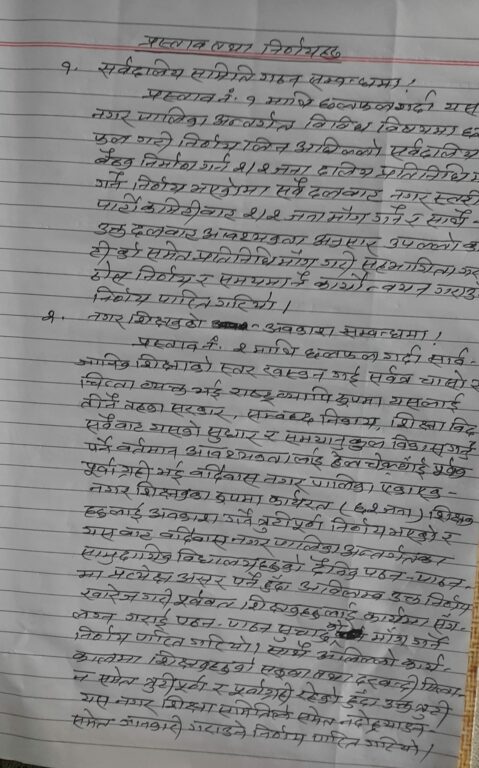 प्रस्ताव तथा निर्णयहरु
१. सर्वदलिय समिति गठन सम्बन्धमा !
प्रस्ताव नं. १ माथि छलफल गर्दा यस
नगरपालिका अन्तर्गत विविध विषयमा छ
फल गरी निर्णय लिन अघिल्लो सर्वदलिय
बैठक निर्माण गर्न २/२ जना दलिय प्रतिनिधि
गर्ने निर्णय भएकोमा सर्वै दलबाट नगर स्तरी
पार्टी कमिटीबाट २/२ जना माँग गर्ने र साथै-
उक्त दलबाट आवश्यकता अनुसार उपल्लो क
टी को समेत प्रतिनिधि माँग गरी सहभागिता गरा
ठोस निर्णय र समयमानै कार्यान्वयन गराउने
निर्णय पारित गरियो।
२. नगर शिक्षकको अवकाश सम्बन्धमा !
प्रस्ताव नं. २ माथि छलफल गर्दा सार्व-
जानिक शिक्षाको स्तर खस्कन गई सर्वत्र चासो र
चिन्ता व्यक्त भई राष्ट्रव्यापि रुपमा यसलाई
तीनै तहका सरकार, सम्बन्धित निकाय, शिक्षा विद
सबैबाट यसको सुधार र समयानुकुल विकास गर्न
पर्ने वर्तमान आवश्यकतालाई
पूर्वाग्रही भई बर्दिबास नगरपालिका
नगर शिक्षकका रुपमा कार्यरत (६२ जना) शिक्षक
हरुलाई अवकाश गर्ने त्रुटीपूर्ण निर्णय भएको र
यसबाट बर्दिबास नगरपालिका अन्तर्गतका
सामुदायिक विद्यालयहरुको दैनिक पठन-पाठन-
मा प्रत्यक्ष असर पर्ने हुँदा अविलम्ब उक्त निर्णय
खारेज गरी पूर्ववत शिक्षकहरुलाई कार्यमा संग-
लग्न गराई पठन-पाठन सुचारु माँग गर्ने
निर्णय पारित गरियो। साथै अघिल्लो कार्य-
कालमा शिक्षकहरुको सरुवा तथा दरबन्दी मिला-
न समेत त्रुटीपूर्ण र पूर्वाग्रही रहेको हुँदा उक्त त्रुटी
यस नगर शिक्षा समितिले समेत नदोहर्‍याउन-
समेत जानकारी गराउने निर्णय पारित गरियो।